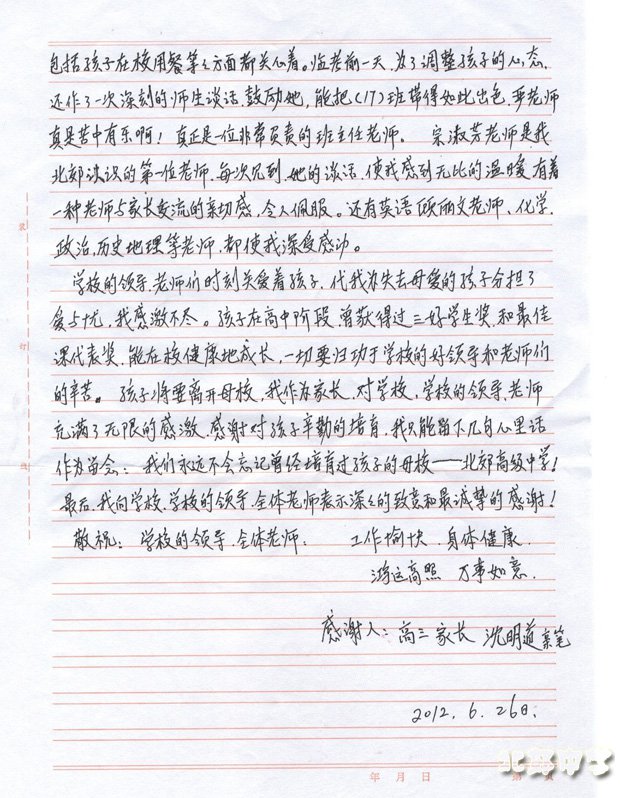 包括孩子在校用餐等之方面都关心着。临考前一天,为了调整孩子的心态,
还作了一次深刻的师生谈话,鼓励她,能把(17)班带得如此出色,严老师
真是苦中有乐啊!真正是一位非常负责的班主任老师。 宗淑芳老师是我
北郊认识的第一位老师,每次见到她的谈话,使我感到无比的温暖,有着
一种老师与家长交流的亲切感,令人佩服。还有英语顾丽文老师、化学,
政治,历史地理等老师,都使我深受感动。
学校的领导,老师们时刻关爱着孩子,代我为失去母爱的孩子分担了
爱与忧,我感激不尽。孩子在高中阶段,曾获得过三好学生奖,和最佳
课代表奖,能在校健康地成长,一切要归功于学校的好领导和老师们
的辛苦。孩子将要离开母校,我作为家长,对学校,学校的领导、老师
充满了无限的感激,感谢对孩子辛勤的培育,我只能留下几句心里话
作为留念:我们永远不会忘记曾经培育过孩子的母校——北郊高级中学!
最后,我向学校,学校的领导,全体老师表示深深的致意和最诚挚的感谢!
敬祝:学校的领导、全体老师. 工作愉快,身体健康,
鸿运高照 万事如意.
感谢人:高三家长 沈明道亲笔
2012.6.26日.
装
订
线
年 月 日 第 页